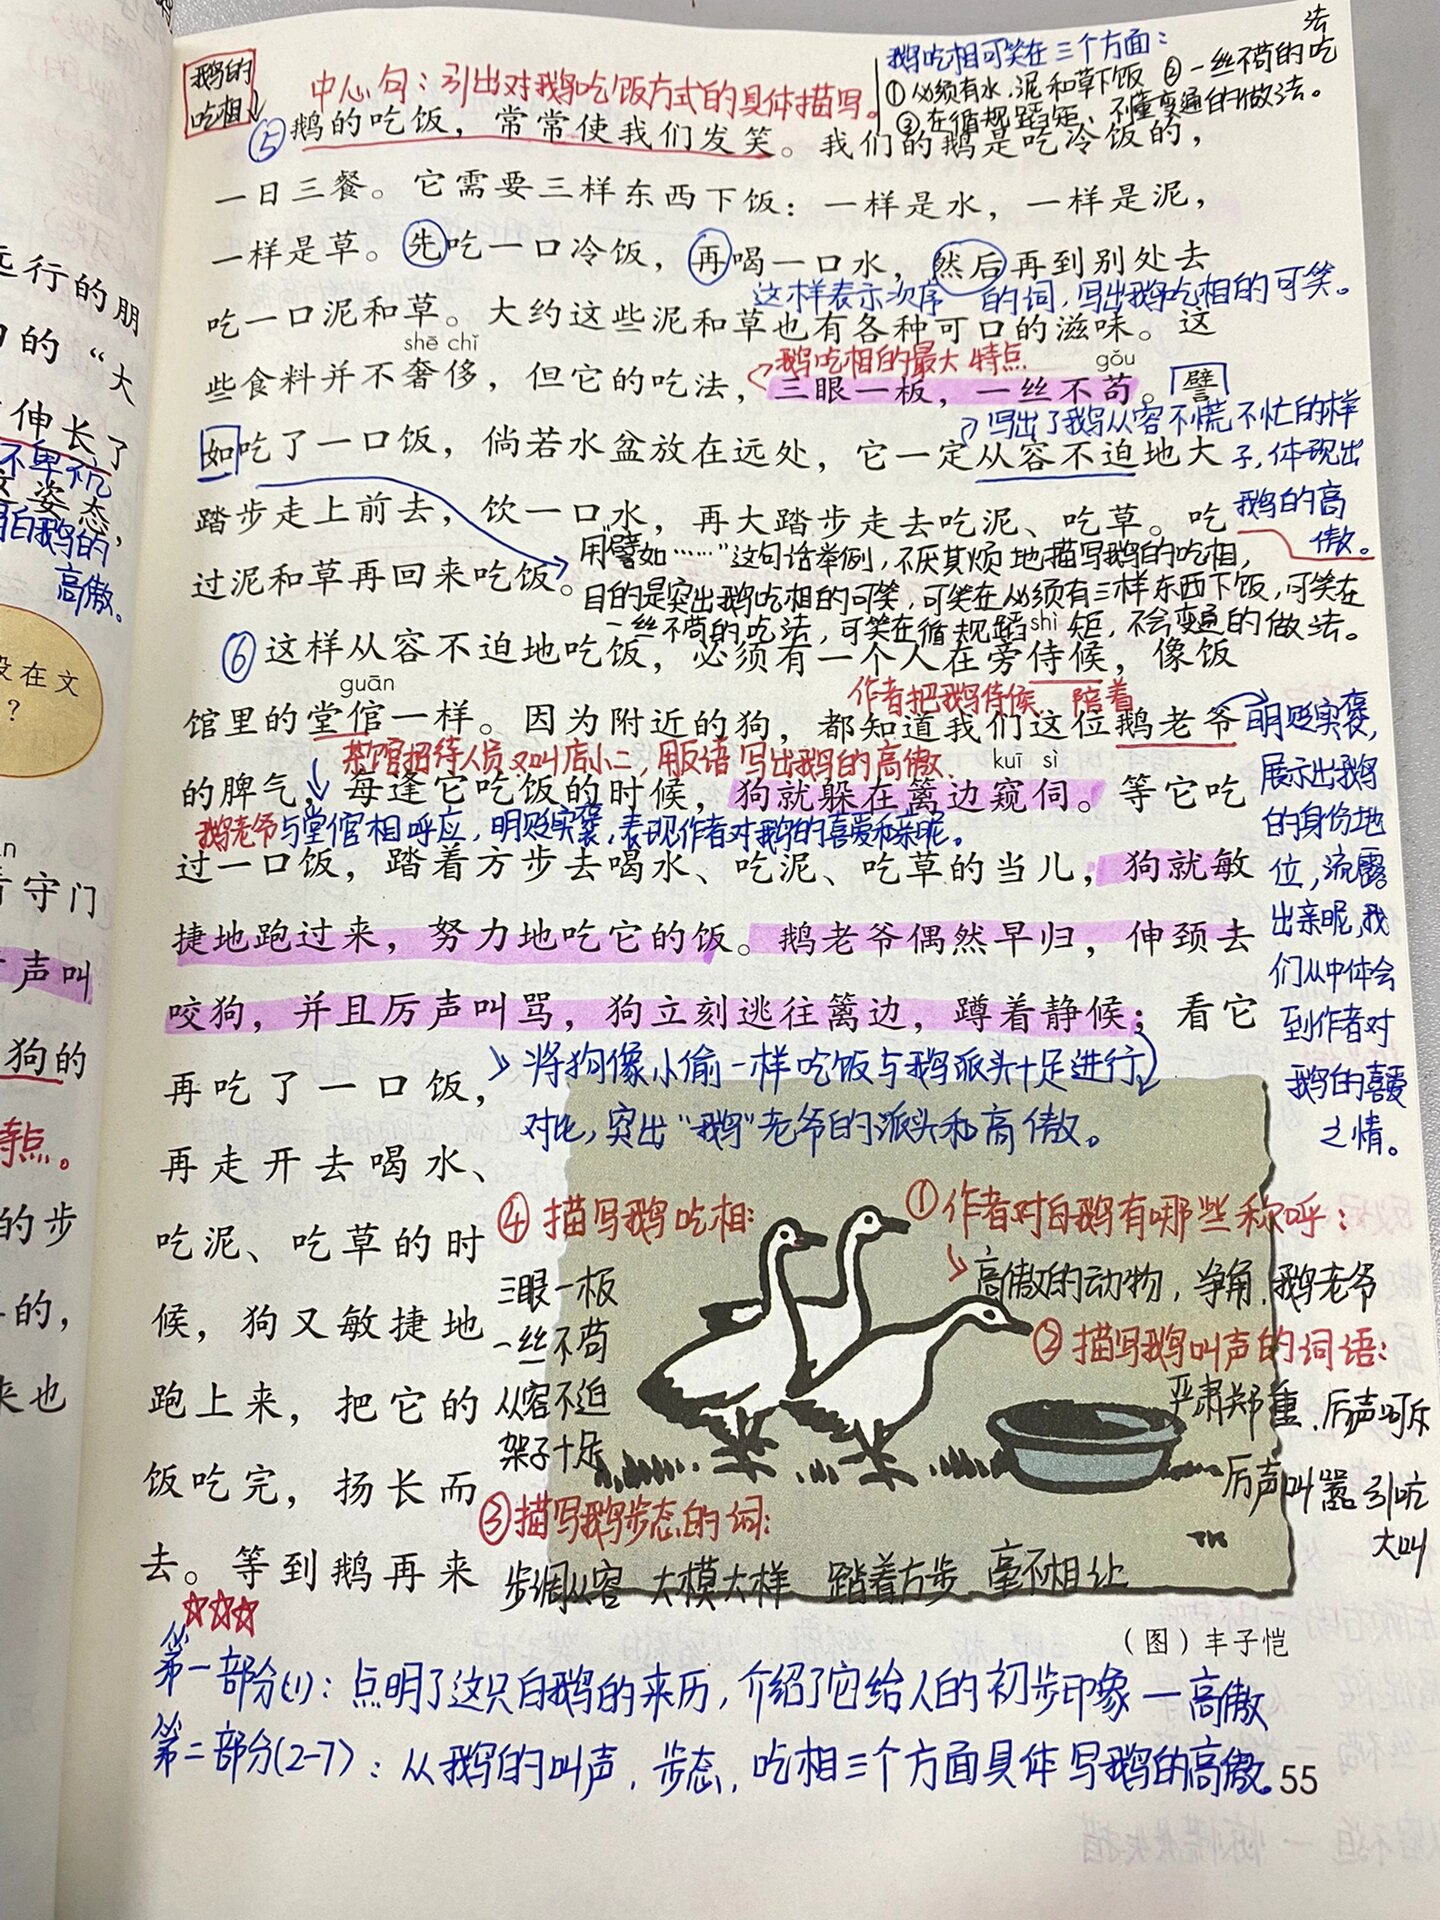 鹅的
吃相
中心句：引出对鹅吃饭方式的具体描写。
鹅吃相可笑在三个方面：
①必须有水、泥和草下饭 ②一丝不苟的吃法
③在循规蹈矩、不懂变通的做法。
⑤鹅的吃饭，常常使我们发笑。我们的鹅是吃冷饭的，
一日三餐。它需要三样东西下饭：一样是水，一样是泥，
一样是草。先吃一口冷饭，再喝一口水，然后再到别处去
这样表示次序的词，写出鹅吃相的可笑。
吃一口泥和草。大约这些泥和草也有各种可口的滋味。这
shē chǐ
鹅吃相的最大特点
gǒu
些食料并不奢侈，但它的吃法，三眼一板，一丝不苟。譬
写出了鹅从容不慌不忙的样
子，体现出
鹅的高
傲。
如吃了一口饭，倘若水盆放在远处，它一定从容不迫地大
踏步走上前去，饮一口水，再大踏步走去吃泥、吃草。吃
过泥和草再回来吃饭。
用“譬如……”这句话举例，不厌其烦地描写鹅的吃相，
目的是突出鹅吃相的可笑，可笑在必须有三样东西下饭，可笑在
一丝不苟的吃法，可笑在循规蹈矩，不会变通的做法。
shì
⑥这样从容不迫地吃饭，必须有一个人在旁侍候，像饭
guān
作者把鹅侍候、陪着
馆里的堂倌一样。因为附近的狗，都知道我们这位鹅老爷
茶馆招待人员又叫店小二，用反语写出鹅的高傲。
kuī sì
的脾气，每逢它吃饭的时候，狗就躲在篱边窥伺。等它吃
鹅老爷与堂倌相呼应，明贬实褒，表现作者对鹅的喜爱和亲昵。
过一口饭，踏着方步去喝水、吃泥、吃草的当儿，狗就敏
捷地跑过来，努力地吃它的饭。鹅老爷偶然早归，伸颈去
咬狗，并且厉声叫骂，狗立刻逃往篱边，蹲着静候；看它
明贬实褒，
展示出鹅
的身份地
位，流露
出亲昵，我
们从中体会
到作者对
鹅的喜爱
之情。
再吃了一口饭，
再走开去喝水、
吃泥、吃草的时
候，狗又敏捷地
跑上来，把它的
饭吃完，扬长而
去。等到鹅再来
将狗像小偷一样吃饭与鹅派头十足进行
对比，突出“鹅”老爷的派头和高傲。
④描写鹅吃相：
三眼一板
一丝不苟
从容不迫
架子十足
①作者对白鹅有哪些称呼：
高傲的动物，争角，鹅老爷
②描写鹅叫声的词语：
严肃郑重、厉声呵斥
厉声叫嚣 引吭
大叫
③描写鹅步态的词：
步调从容 大模大样 踏着方步 毫不相让
TK
（图）丰子恺
第一部分(1)：点明了这只白鹅的来历，介绍了它给人的初步印象—高傲
第二部分(2-7)：从鹅的叫声，步态，吃相三个方面具体写鹅的高傲。
55
远行的朋
的“大
伸长了
不卑不亢
姿态，
白鹅的
高傲。
没在文
？
守门
声叫
狗的
特点。
的步
的，
来也